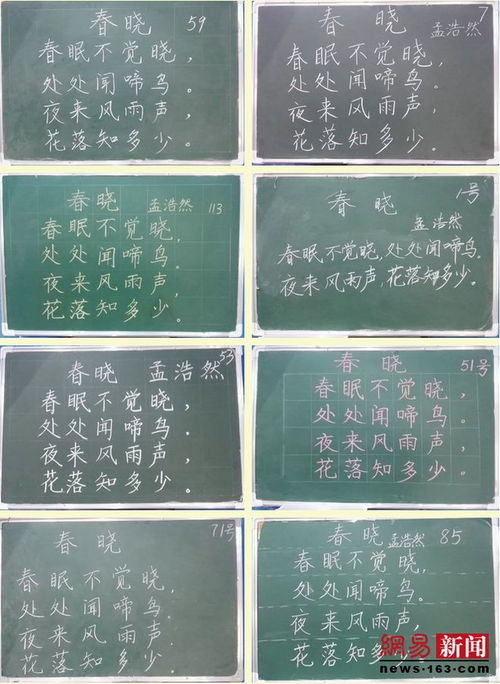 春晓 59
春眠不觉晓，
处处闻啼鸟。
夜来风雨声，
花落知多少。
春晓 孟浩然 7
春眠不觉晓，
处处闻啼鸟。
夜来风雨声，
花落知多少。
春晓 孟浩然 113
春眠不觉晓，
处处闻啼鸟。
夜来风雨声，
花落知多少。
春晓 1号
孟浩然
春眠不觉晓，处处闻啼鸟。
夜来风雨声，花落知多少。
春晓 孟浩然 53
春眠不觉晓，
处处闻啼鸟.
夜来风雨声，
花落知多少。
春晓 51号
春眠不觉晓，
处处闻啼鸟。
夜来风雨声，
花落知多少。
春晓 71号
春眠不觉晓，
处处闻啼鸟.
夜来风雨声
花落知多少。
春晓 孟浩然 85
春眠不觉晓，
处处闻啼鸟。
夜来风雨声，
花落知多少。
網易 新闻
news·163·com